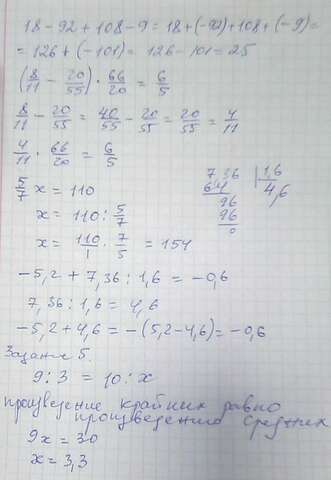 18 - 92 + 108 - 9 = 18 + (-92) + 108 + (-9) =
= 126 + (-101) = 126 - 101 = 25
(8/11 - 20/55) · 66/20 = 6/5
8/11 - 20/55 = 40/55 - 20/55 = 20/55 = 4/11
4/11 · 66/20 = 6/5
5/7 x = 110
x = 110 : 5/7
x = 110/1 · 7/5 = 154
7,36 | 1,6
64 | 4,6
96
96
0
-5,2 + 7,36 : 1,6 = -0,6
7,36 : 1,6 = 4,6
-5,2 + 4,6 = -(5,2 - 4,6) = -0,6
Задание 5.
9 : 3 = 10 : x
произведение крайних равно
произведению средних
9x = 30
x = 3,3